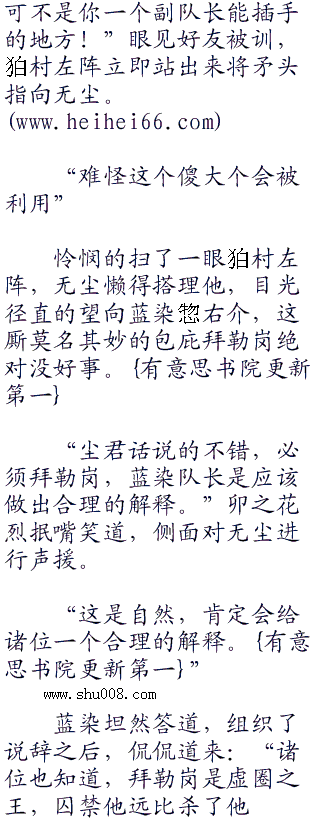 可不是你一个副队长能插手
的地方！”眼见好友被训，
狛村左阵立即站出来将矛头
指向无尘。
(www.heihei66.com)
“难怪这个傻大个会被
利用”
怜悯的扫了一眼狛村左
阵，无尘懒得搭理他，目光
径直的望向蓝染惣右介，这
厮莫名其妙的包庇拜勒岗绝
对没好事。{有意思书院更新
第一}
“尘君话说的不错，必
须拜勒岗，蓝染队长是应该
做出合理的解释。”卯之花
烈抿嘴笑道，侧面对无尘进
行声援。
“这是自然，肯定会给
诸位一个合理的解释。{有意
思书院更新第一}”
www.shu008.com
蓝染坦然答道，组织了
说辞之后，侃侃道来：“诸
位也知道，拜勒岗是虚圈之
王，囚禁他远比杀了他